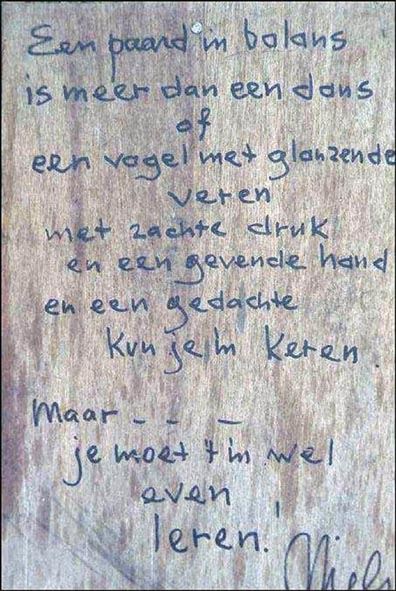 Een paard in balans
is meer dan een dans
of
een vogel met glanzende
veren
met zachte druk
en een gevende hand
en een gedachte
kun je 'm keren.
Maar - - -
je moet 't 'm wel
even
leren!